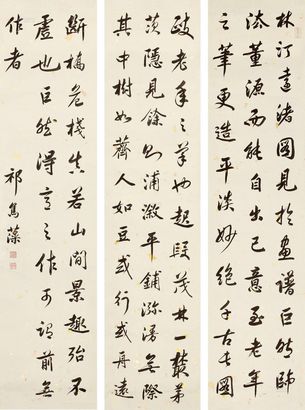 林汀遠渚圖見於畫譜巨然師
法董源而能自出己意至老年
之筆更造平淡妙絕千古長圖
跋老年之筆也起段茂林一叢茅
茨隱見餘則浦漵平鋪瀰漫無際
其中樹如薺人如豆或行或舟遠
斷橋危棧真若山間景趣殆不
虛也巨然得意之作可謂前無
作者
祁寯藻